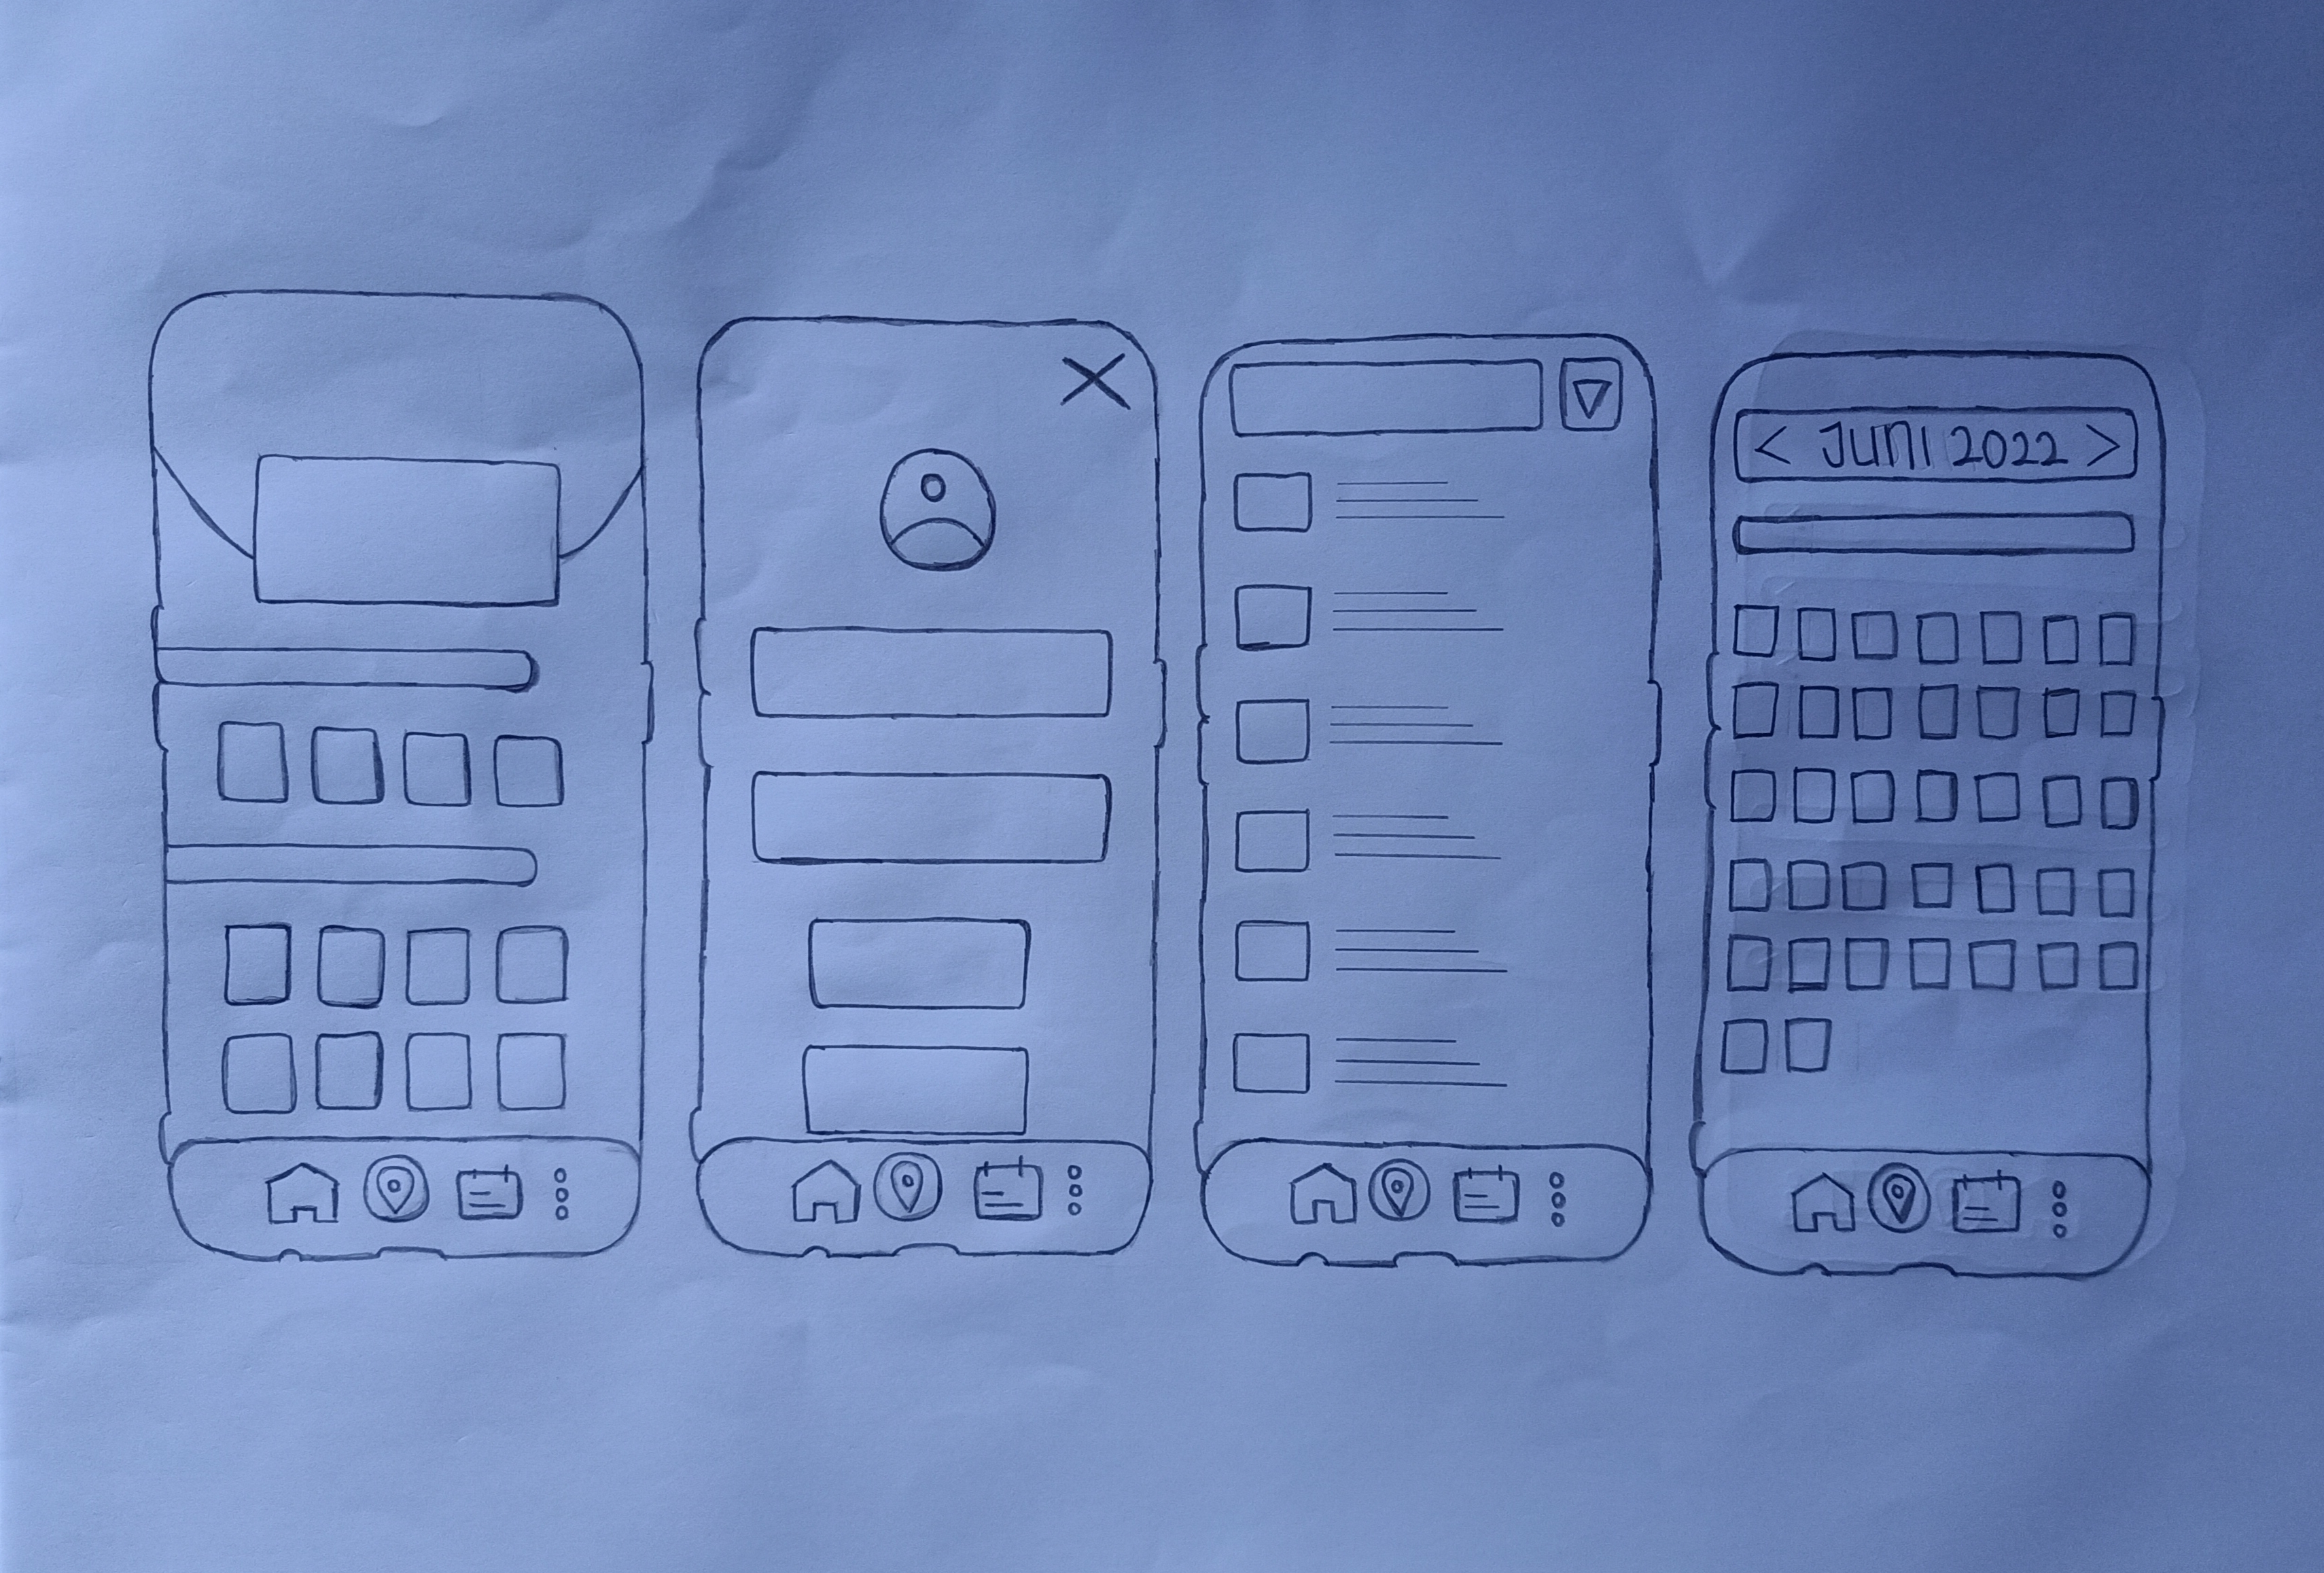 < JUNI 2022 >